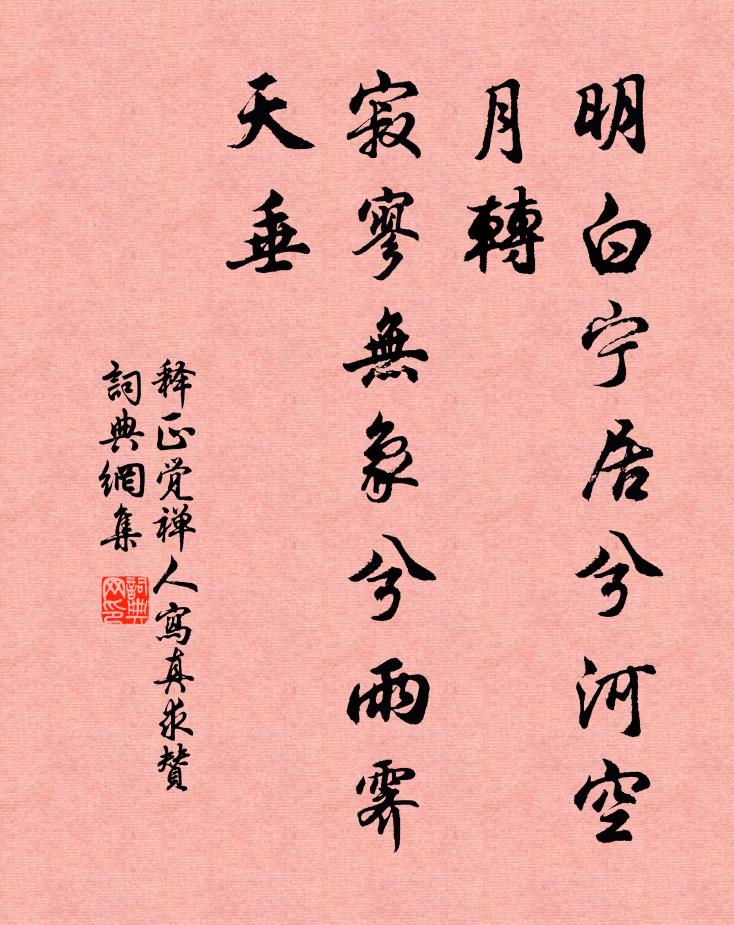 明白宁居兮河空
月轉
寂寥無象兮雨霁
天垂
释正觉禅人寫真求贊
詞典網集
詞典網印